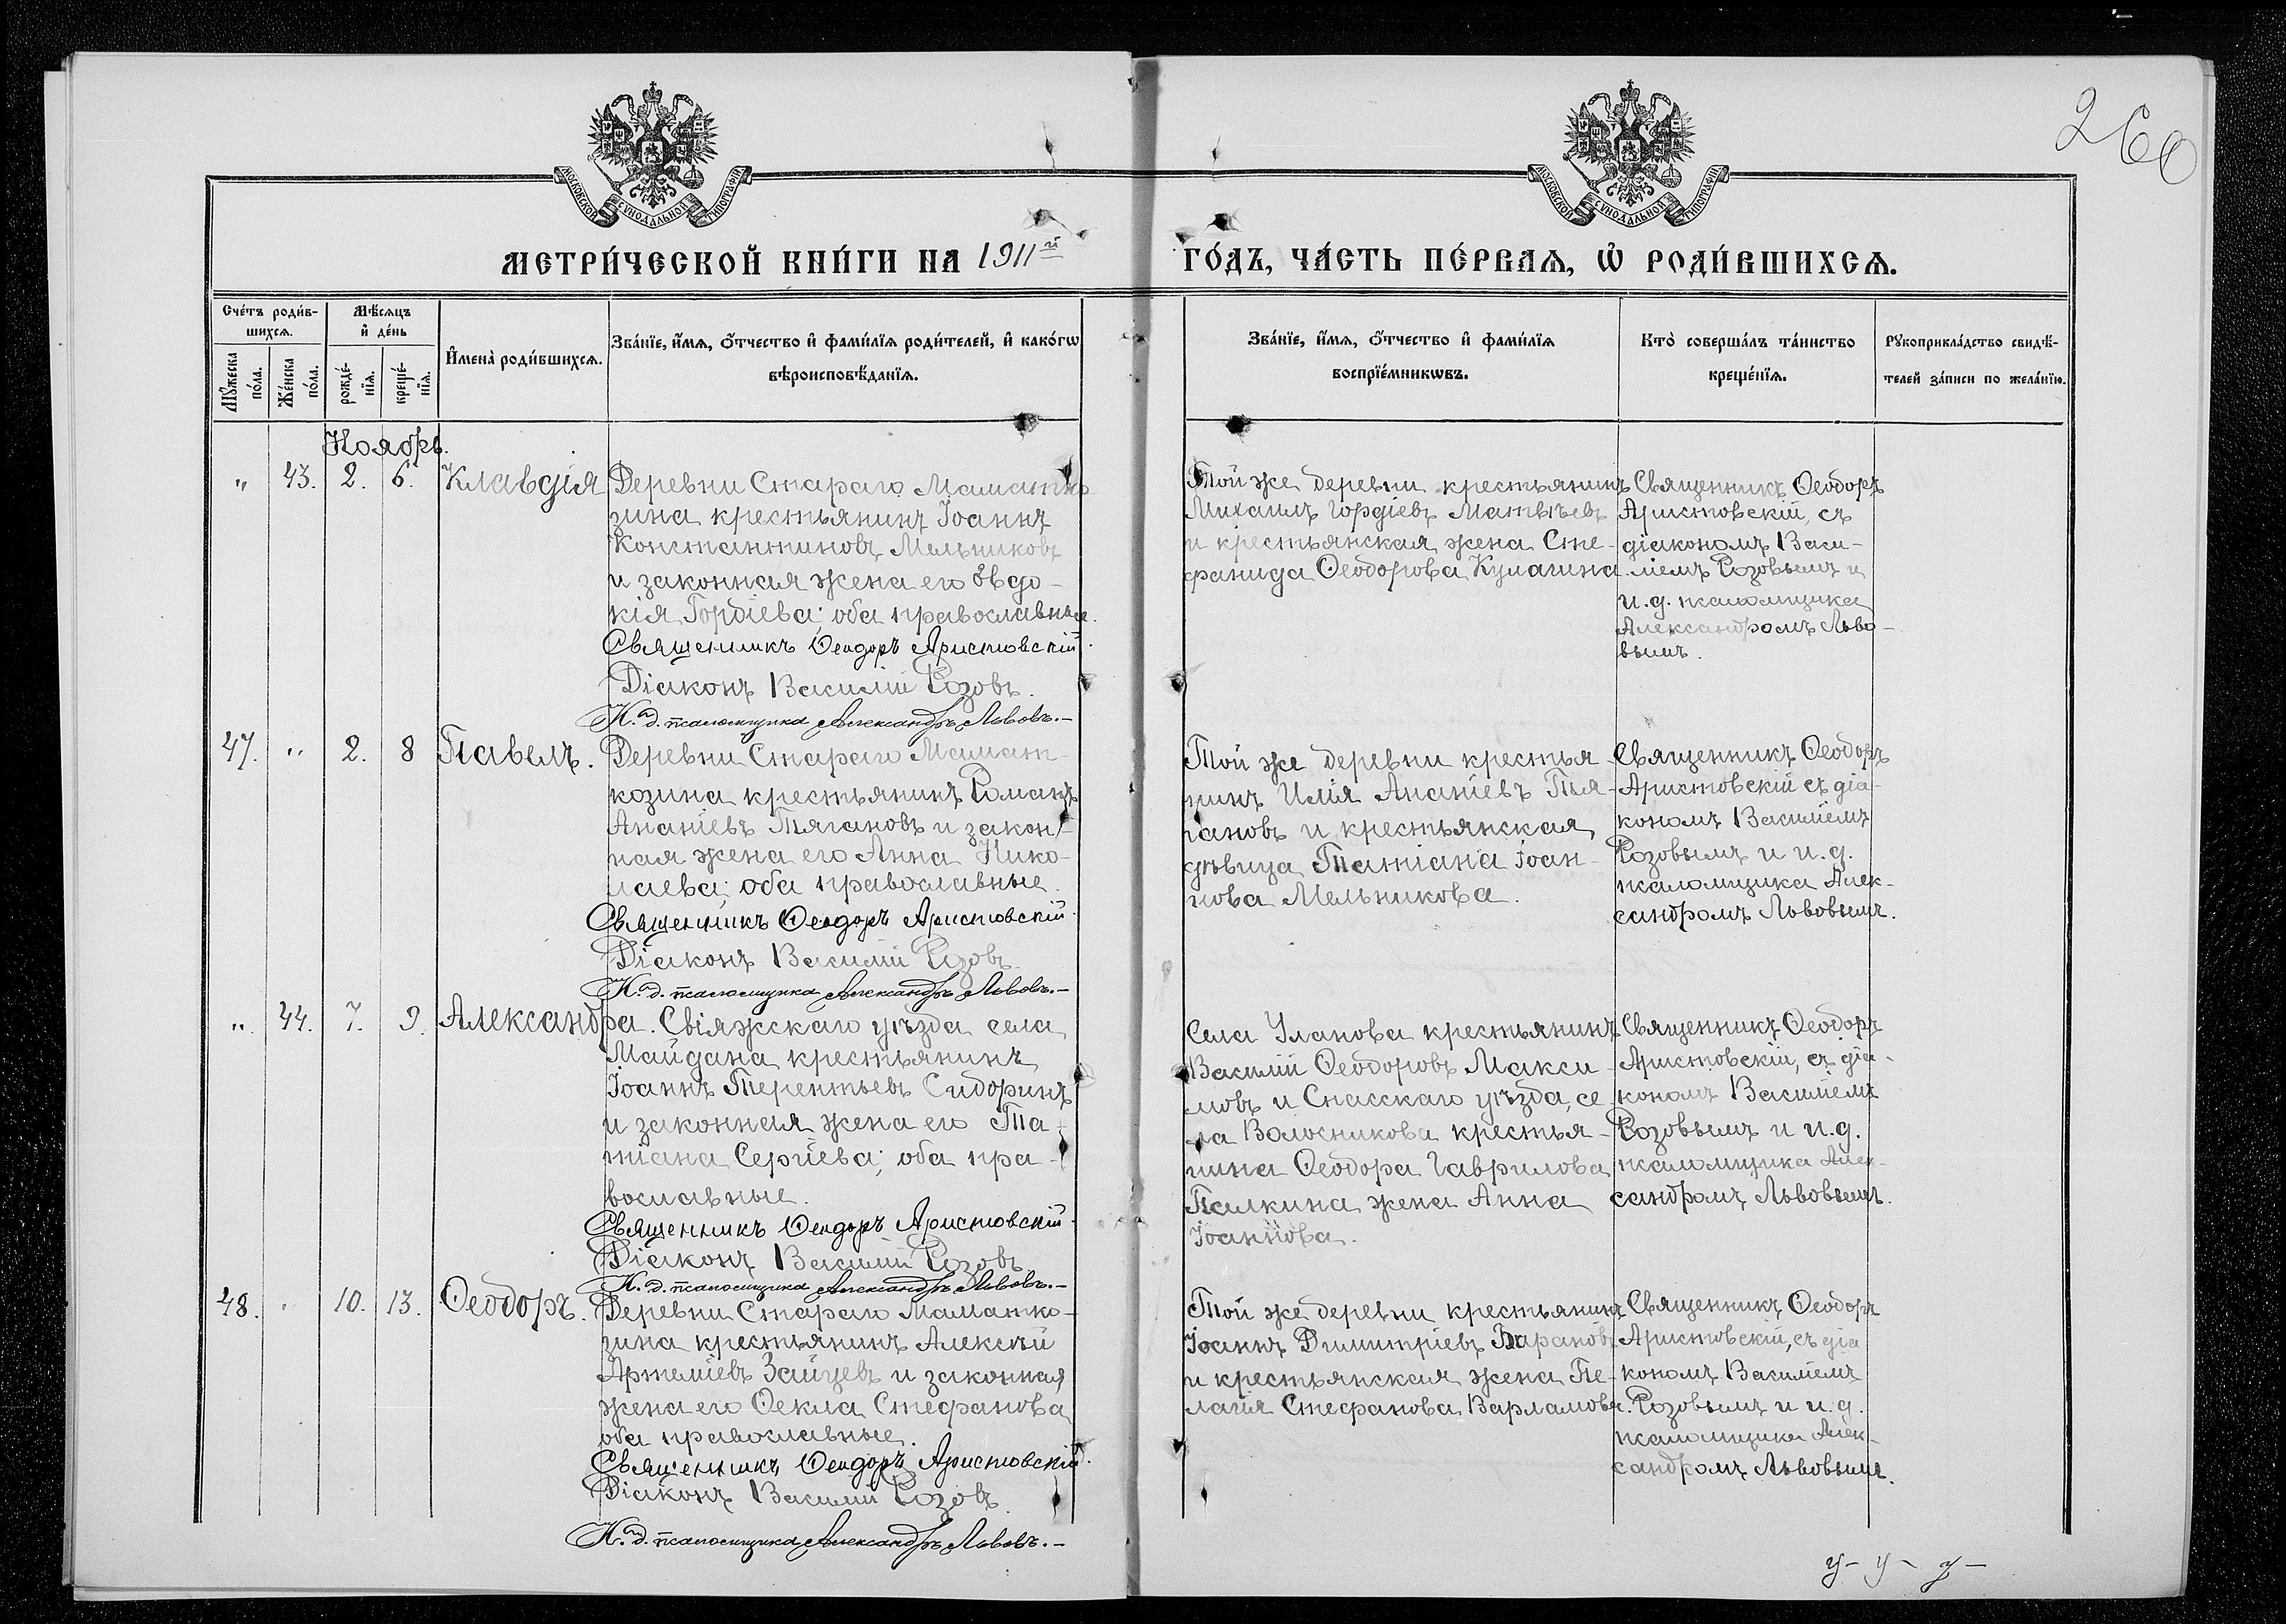 260
МОСКОВСКОЙ СѴНОДАЛЬНОЙ ТИПОГРАФІИ
МОСКОВСКОЙ СѴНОДАЛЬНОЙ ТИПОГРАФІИ
МЕТРИ́ЧЕСКОЙ КНИ́ГИ НА 1911й ГО́ДЪ, ЧА́СТЬ ПЕ́РВАѦ, Ѡ҆ РОДИ́ВШИХСѦ.
Сче́тъ роди́в-
шихсѧ.
Мѣ́сѧцъ
и҆ де́нь
Мꙋ́жеска
по́ла.
Же́нска
по́ла.
рожде́-
нїѧ.
креще́-
нїѧ.
И҆мена̀ роди́вшихсѧ.
Зва́нїе, и҆́мѧ, ѻ҆́тчество и҆ фами́лїѧ роди́телей, и҆ како́гѡ
вѣроисповѣ́данїѧ.
Зва́нїе, и҆́мѧ, ѻ҆́тчество и҆ фами́лїѧ
воспрїе́мникѡвъ.
Кто̀ соверша́лъ та́инство
креще́нїѧ.
Рꙋкоприкла́дство свидѣ́-
телей за́писи по жела́нїю.
Ноябрь.
" 43. 2. 6. Клавдія
Деревни Стараго Маматко-
зина крестьянинъ Іоаннъ
Константиновъ Мельниковъ
и законная жена его Евдо-
кія Гордіева; оба православные.
Священникъ Ѳеодоръ Аристовскій.
Діаконъ Василій Розовъ.
И. д. псаломщика Александръ Львовъ.–
Той же деревни крестьянинъ
Михаилъ Гордіевъ Матвѣевъ
и крестьянская жена Сте-
фанида Ѳеодорова Кулагина.
Священникъ Ѳеодоръ
Аристовскій, съ
діакономъ Васи-
ліемъ Розовымъ и
и. д. псаломщика
Александромъ Льво-
вымъ.
47. " 2. 8 Павелъ.
Деревни Стараго Мамат-
козина крестьянинъ Романъ
Ананіевъ Тягановъ и закон-
ная жена его Анна Нико-
лаева; оба православные.
Священникъ Ѳеодоръ Аристовскій.
Діаконъ Василій Розовъ.
И. д. псаломщика Александръ Львовъ.–
Той же деревни крестья-
нинъ Илія Ананіевъ Тя-
гановъ и крестьянская
дѣвица Татіана Іоан-
нова Мельникова.
Священникъ Ѳеодоръ
Аристовскій съ діа-
кономъ Василіемъ
Розовымъ и и. д.
псаломщика Алек-
сандромъ Львовымъ.
" 44. 7. 9. Александра.
Свіяжскаго уѣзда села
Майдана крестьянинъ
Іоаннъ Терентьевъ Сидоринъ
и законная жена его Та-
тіана Сергіева; оба пра-
вославные.
Священникъ Ѳеодоръ Аристовскій.
Діаконъ Василій Розовъ.
И. д. псаломщика Александръ Львовъ.–
Села Уланова крестьянинъ
Василій Ѳеодоровъ Макси-
мовъ и Спасскаго уѣзда, се-
ла Волосникова крестья-
нина Ѳеодора Гаврилова
Палкина жена Анна
Іоаннова.
Священникъ Ѳеодоръ
Аристовскій, съ діа-
кономъ Василіемъ
Розовымъ и и. д.
псаломщика Алек-
сандромъ Львовымъ.
48. " 10. 13. Ѳеодоръ.
Деревни Стараго Маматко-
зина крестьянинъ Алексѣй
Артеміевъ Зайцевъ и законная
жена его Ѳекла Стефанова
оба православные.
Священникъ Ѳеодоръ Аристовскій.
Діаконъ Василій Розовъ.
И. д. псаломщика Александръ Львовъ.–
Той же деревни крестьянинъ
Іоаннъ Димитріевъ Барановъ
и крестьянская жена Пе-
лагія Стефанова Варламова.
Священникъ Ѳеодоръ
Аристовскій, съ діа
кономъ Василіемъ
Розовымъ и и. д.
псаломщика Алек-
сандромъ Львовымъ.